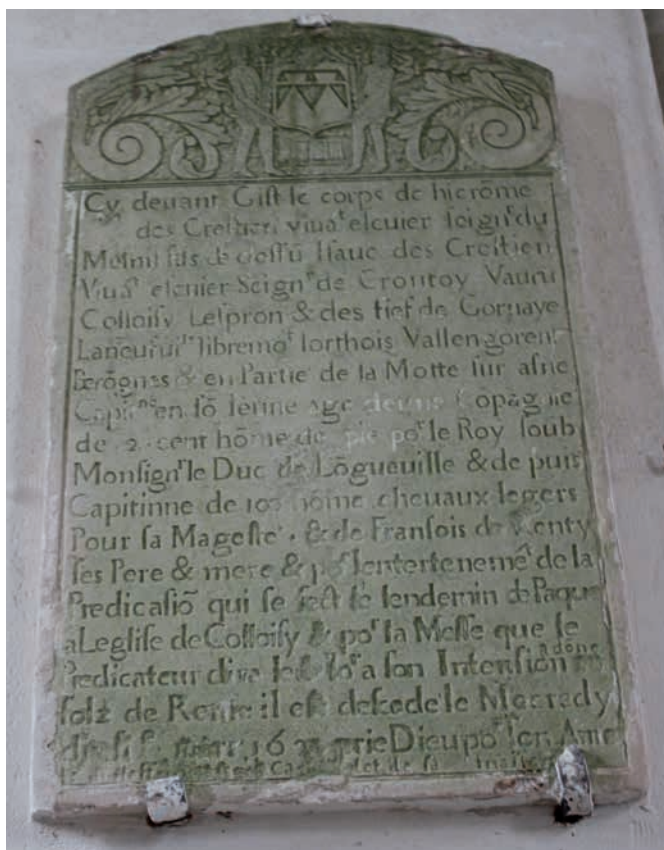 Cy devant Gist le corps de hierôme
des Creitien viuāᵗ escuier seignʳ du
Mesnil fils de deffū Isaac des Creitien
Viuāᵗ escuier Seignʳ de Crontoy Vauru
Colloisy Lespron & des fief de Gornaye
libremōᵗ Iorthois Vallengorent
& en Partie de la Motte sur asne
en sō ferme age deune Cōpāgnie
de 2 cent hōme de pie poʳ le Roy soub
Monsignʳ le Duc de Lōgueuille & de puis
Capitinne de 100 hōme cheuaux legers
Pour sa Mageste & de Fransois de Renty
ses Pere & mere & poʳ lentertenemēᵗ de la
Predicasiō qui se fest le lendemin de Paque
a Leglise de Colloisy & poʳ la Messe que le
Predicateur dira a son Intension adonē
solz de Rente il est desede le Mecredy
16 prie Dieu poʳ son Ame